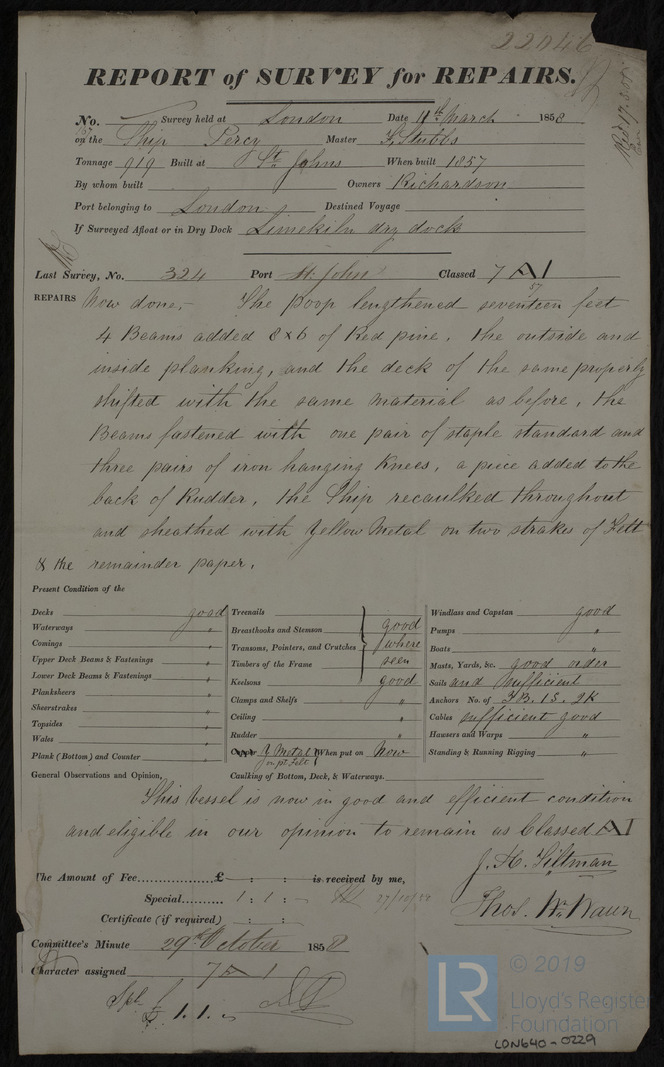 22046
REPORT of SURVEY for REPAIRS.
No. Survey held at London Date 11th March 1858
on the Ship Percy Master F. Stubbs
Tonnage 919 Built at St. Johns When built 1857
By whom built Owners Richardson
Port belonging to London Destined Voyage
If Surveyed Afloat or in Dry Dock Limekiln dry dock
Last Survey, No. 324 Port St. John Classed 7 A1
57
REPAIRS Now done,- The Poop lengthened seventeen feet
4 Beams added 8 x 6 of Red pine. the outside and
inside planking, and the deck of the same properly
shifted with the same material as before, the
Beams fastened with one pair of staple standard and
three pairs of iron hanging Knees, a piece added to the
back of Rudder, the Ship recaulked throughout
and sheathed with Yellow Metal on two strakes of Felt
& the remainder paper.
Present Condition of the
Decks good Treenails Windlass and Capstan good
Waterways " Breasthooks and Stemson good Pumps "
Comings " Transoms, Pointers, and Crutches where Boats "
Upper Deck Beams & Fastenings " Timbers of the Frame seen Masts, Yards, &c. good order
Lower Deck Beams & Fastenings " Keelsons good Sails and sufficient
Planksheers " Clamps and Shelfs " Anchors No. of 3B. 1S. 2K
Sheerstrakes " Ceiling " Cables sufficient good
Topsides " Rudder " Hawsers and Warps "
Wales " Y. Metal When put on Now Standing & Running Rigging "
Plank (Bottom) and Counter " on pt Felt
General Observations and Opinion, Caulking of Bottom, Deck, & Waterways.
This Vessel is now in good and efficient condition
and eligible in our opinion to remain as Classed A1
J. H. Tiltman
The Amount of Fee £ : : is received by me,
Special 1 : 1 : -
Thos. Wm. Wawn
Certificate (if required) : :
Committee's Minute 29th October 1858
Character assigned 7 A 1
Spl £ 1. 1. "
© 2019
LR Lloyd's Register
Foundation
LON640-0229